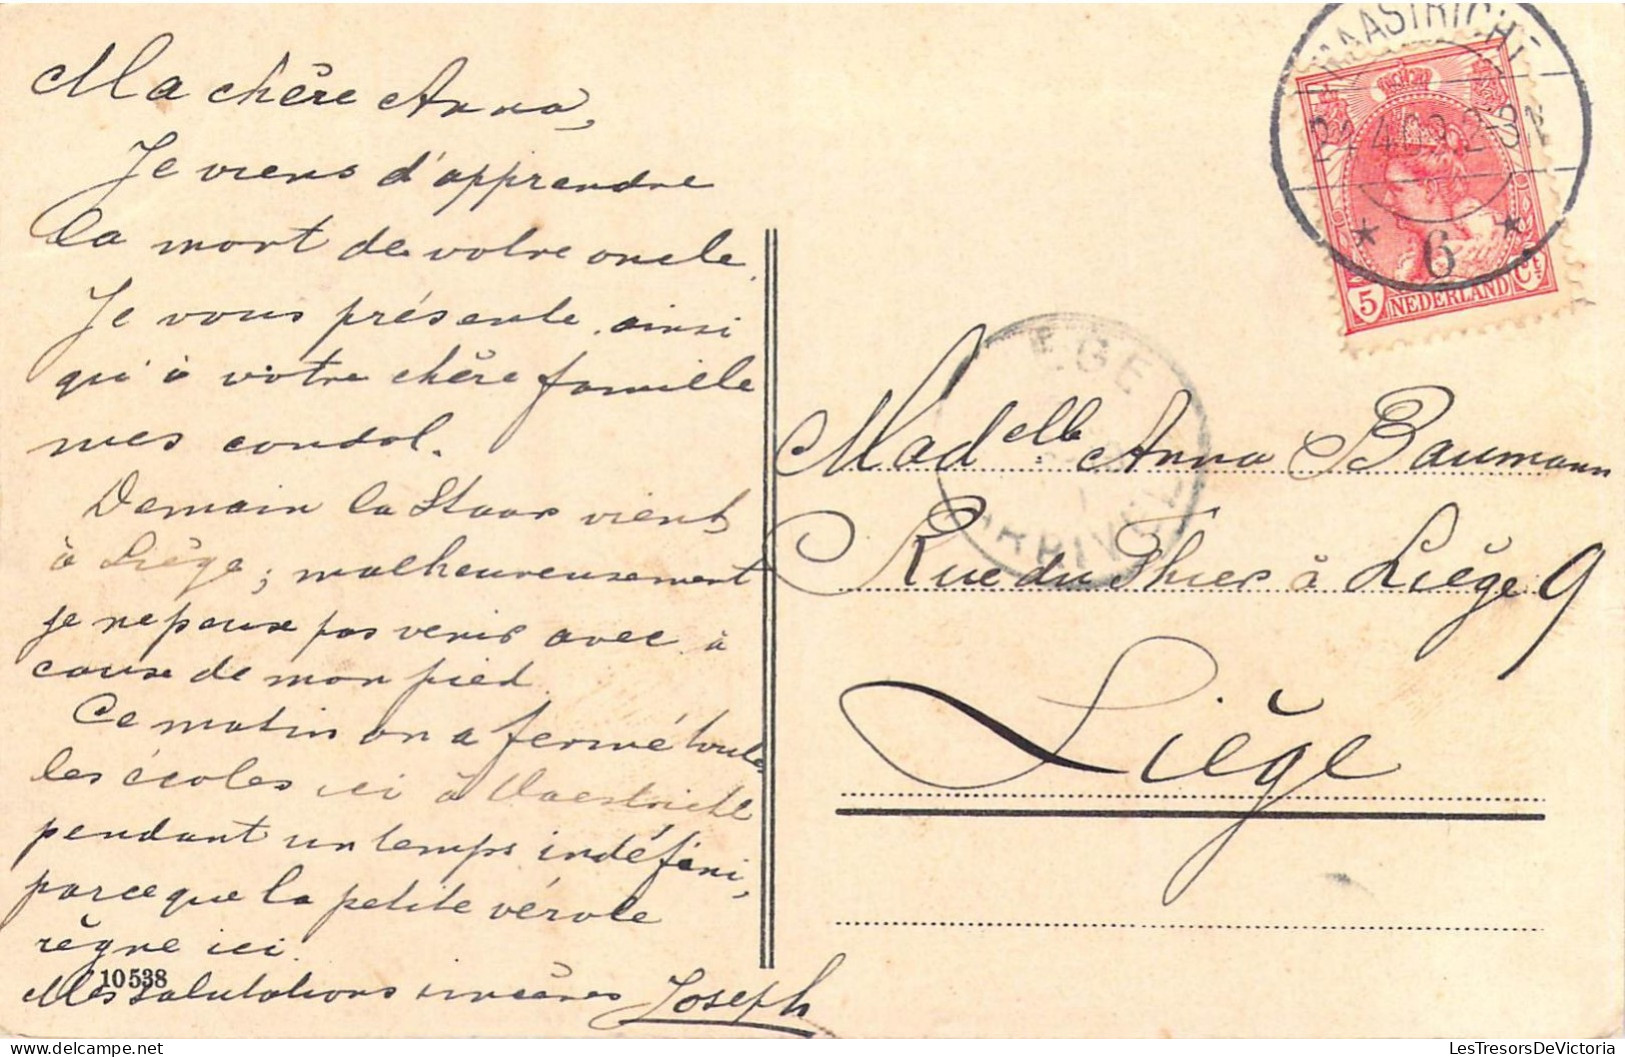 Ma chère Anna,
Je viens d'apprendre
la mort de votre oncle.
Je vous présente ainsi
qu'à votre chère famille
mes condol.
Demain la Staar vient
à Liège; malheureusement
je ne peux pas venir avec à
cause de mon pied.
Ce matin on a fermé toutes
les écoles ici à Maestricht
pendant un temps indéfini,
parce que la petite vérole
règne ici.
10538
Mes salutations sincères Joseph
MAASTRICHT
4.09.2-3
6
5 NEDERLAND CT
EGE
ARRIV
Madelle Anna Baumann
Rue du Thier à Liège 9
Liège
LesTresorsDeVictoria